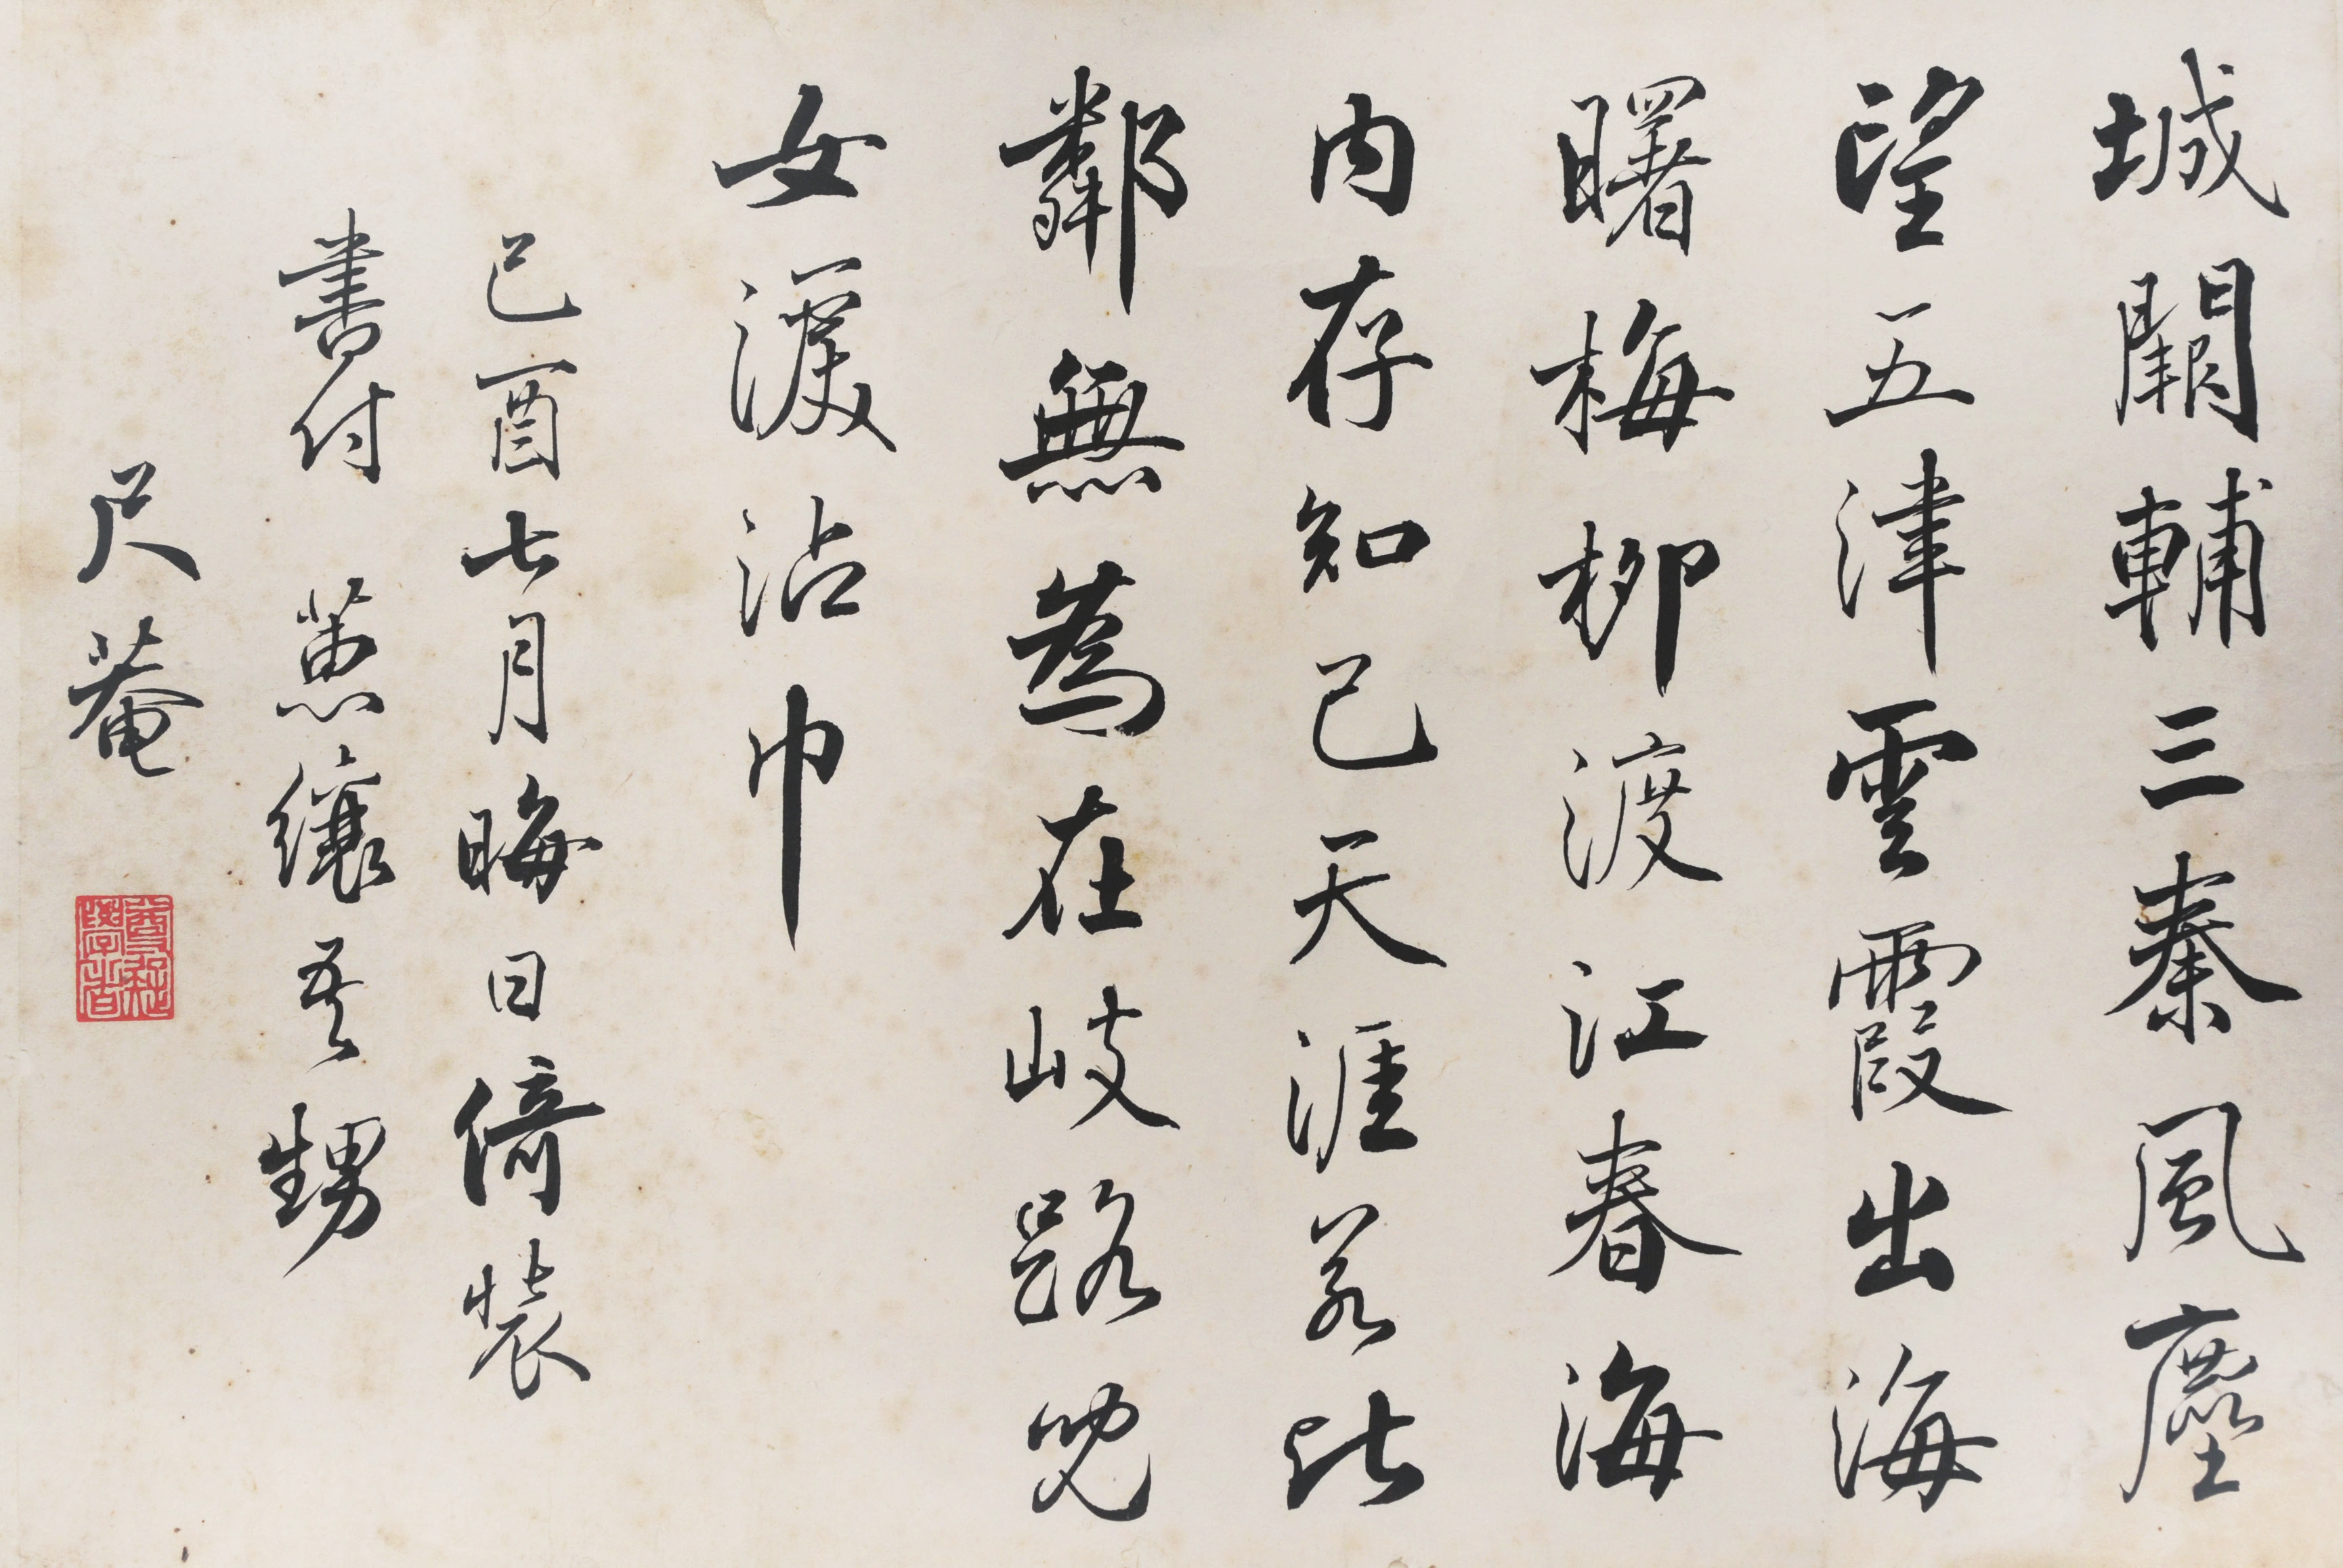 城闕輔三秦風塵
望五津雲霞出海
曙梅柳渡江春海
内存知己天涯若比
鄰無為在岐路兒
女淚沾巾
己酉七月晦日倚装
書付 蕙纕吾甥
尺菴